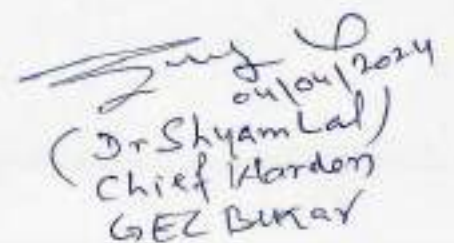 04/04/2024
(Dr Shyam Lal)
Chief Warden
GEC Buxar